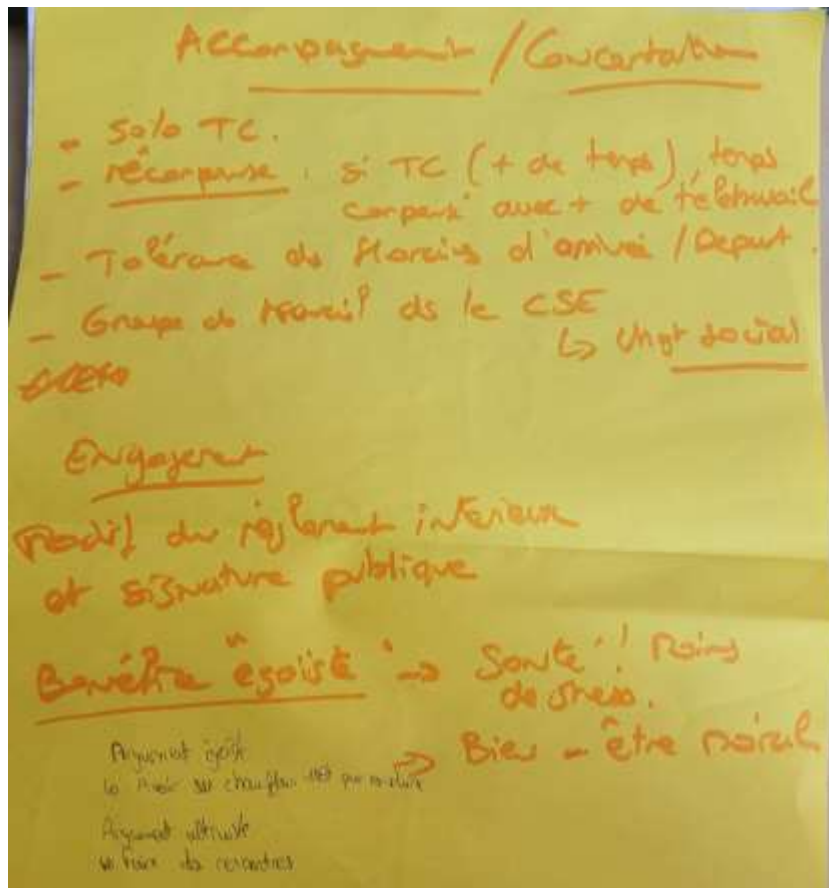 Accompagnement / Concertation
- Solo TC.
- "récompense". si TC (+ de temps), temps
compensé avec + de télétravail
- Tolérance ds Horaires d'arrivée / Depart.
- Groupe de travail ds le CSE
↳ chgt social
Engagement
Modif du règlement intérieur
et signature publique
Bénéfice "égoïste" → Santé ! Moins
de stress.
→ Bien-être moral
Argument égoïste
↳ Avoir un chauffeur
Argument altruiste
↳ Faire des rencontres